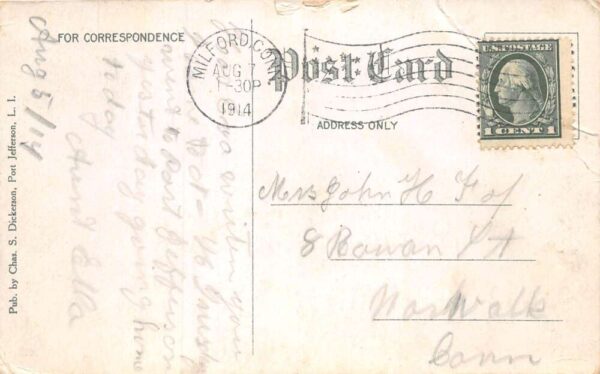 FOR CORRESPONDENCE
Post Card
ADDRESS ONLY
MILFORD, CONN.
AUG 7
1-30P
1914
U.S. POSTAGE
1 CENT 1
Pub. by Chas. S. Dickerson, Port Jefferson, L. I.
Aug 5/14
written you
went to Port Jefferson
yesterday going home
today
Aunt Ella
Mrs John H
8 Rowan St
Norwalk
Conn